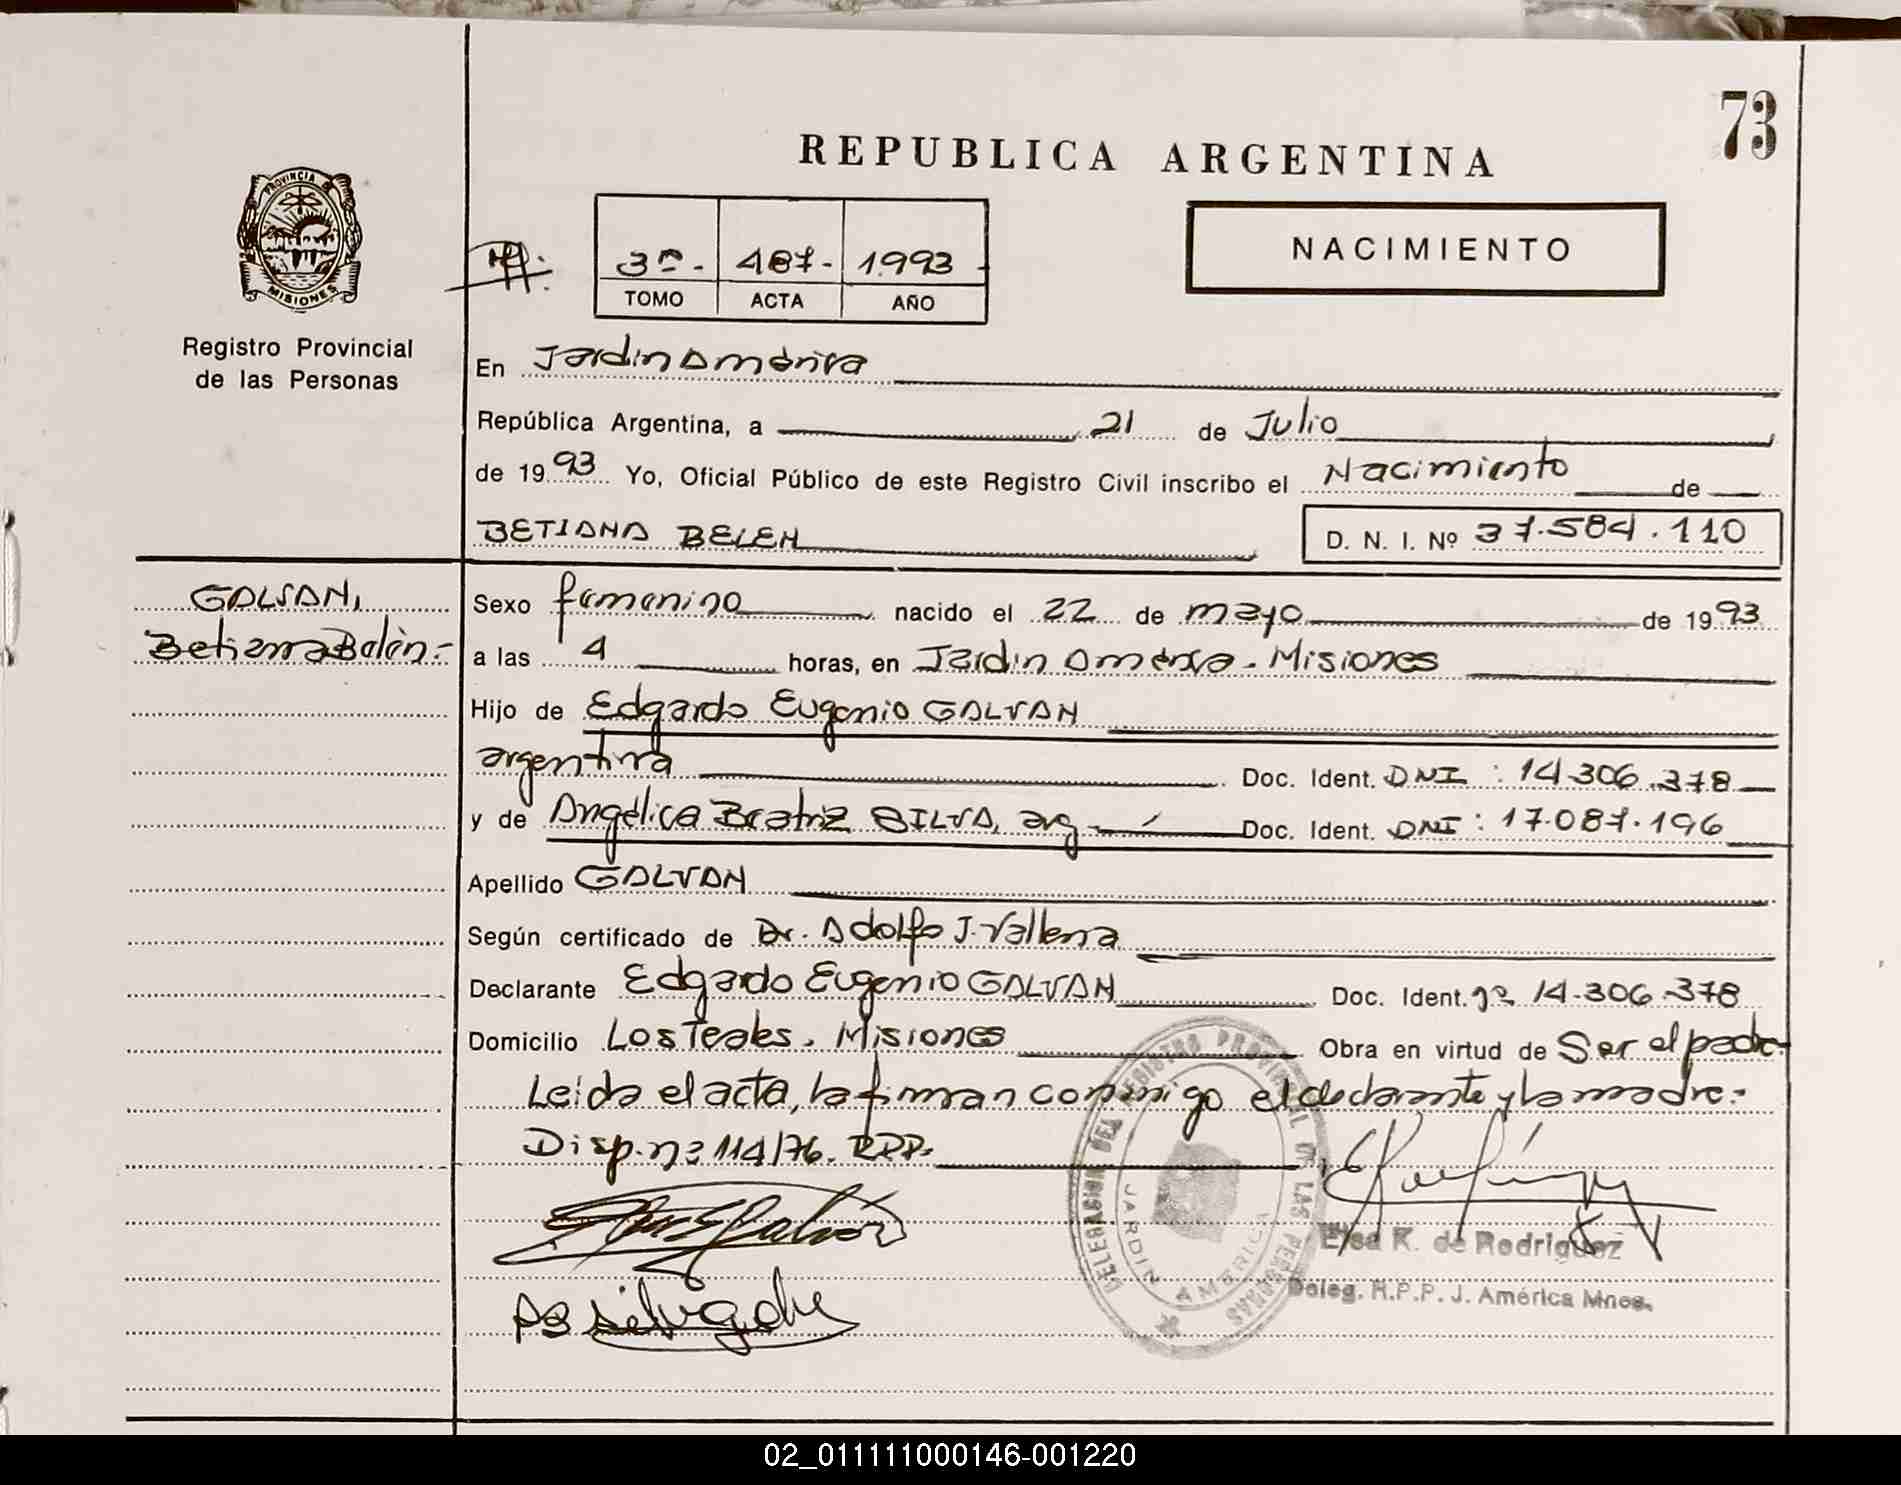 73
REPUBLICA ARGENTINA
PROVINCIA DE
MISIONES
Registro Provincial
de las Personas
3º- 487- 1993
TOMO ACTA AÑO
NACIMIENTO
En Jardin América
República Argentina, a 21 de Julio
de 1993 Yo, Oficial Público de este Registro Civil inscribo el Nacimiento de
BETIANA BELEN D. N. I. Nº 37.584.110
GALVAN,
Betiana Belén-
Sexo femenino nacido el 22 de mayo de 1993
a las 4 horas, en Jardin América. Misiones
Hijo de Edgardo Eugenio GALVAN
argentina Doc. Ident. DNI: 14.306.378
y de Angélica Beatriz SILVA, arg Doc. Ident. DNI: 17.087.196
Apellido GALVAN
Según certificado de Dr. Adolfo J.
Declarante Edgardo Eugenio GALVAN Doc. Ident. 14.306.378
Domicilio Los Teales. Misiones Obra en virtud de Ser el padre
Leida el acta, la firman conmigo el declarante y la madre.-
Disp. nº 114/76. RPP.
DELEGACION DEL REGISTRO PROVINCIAL DE LAS PERSONAS
JARDIN AMERICA
Elsa K. de Rodriguez
Deleg. R.P.P. J. América Mnes.
02_011111000146-001220